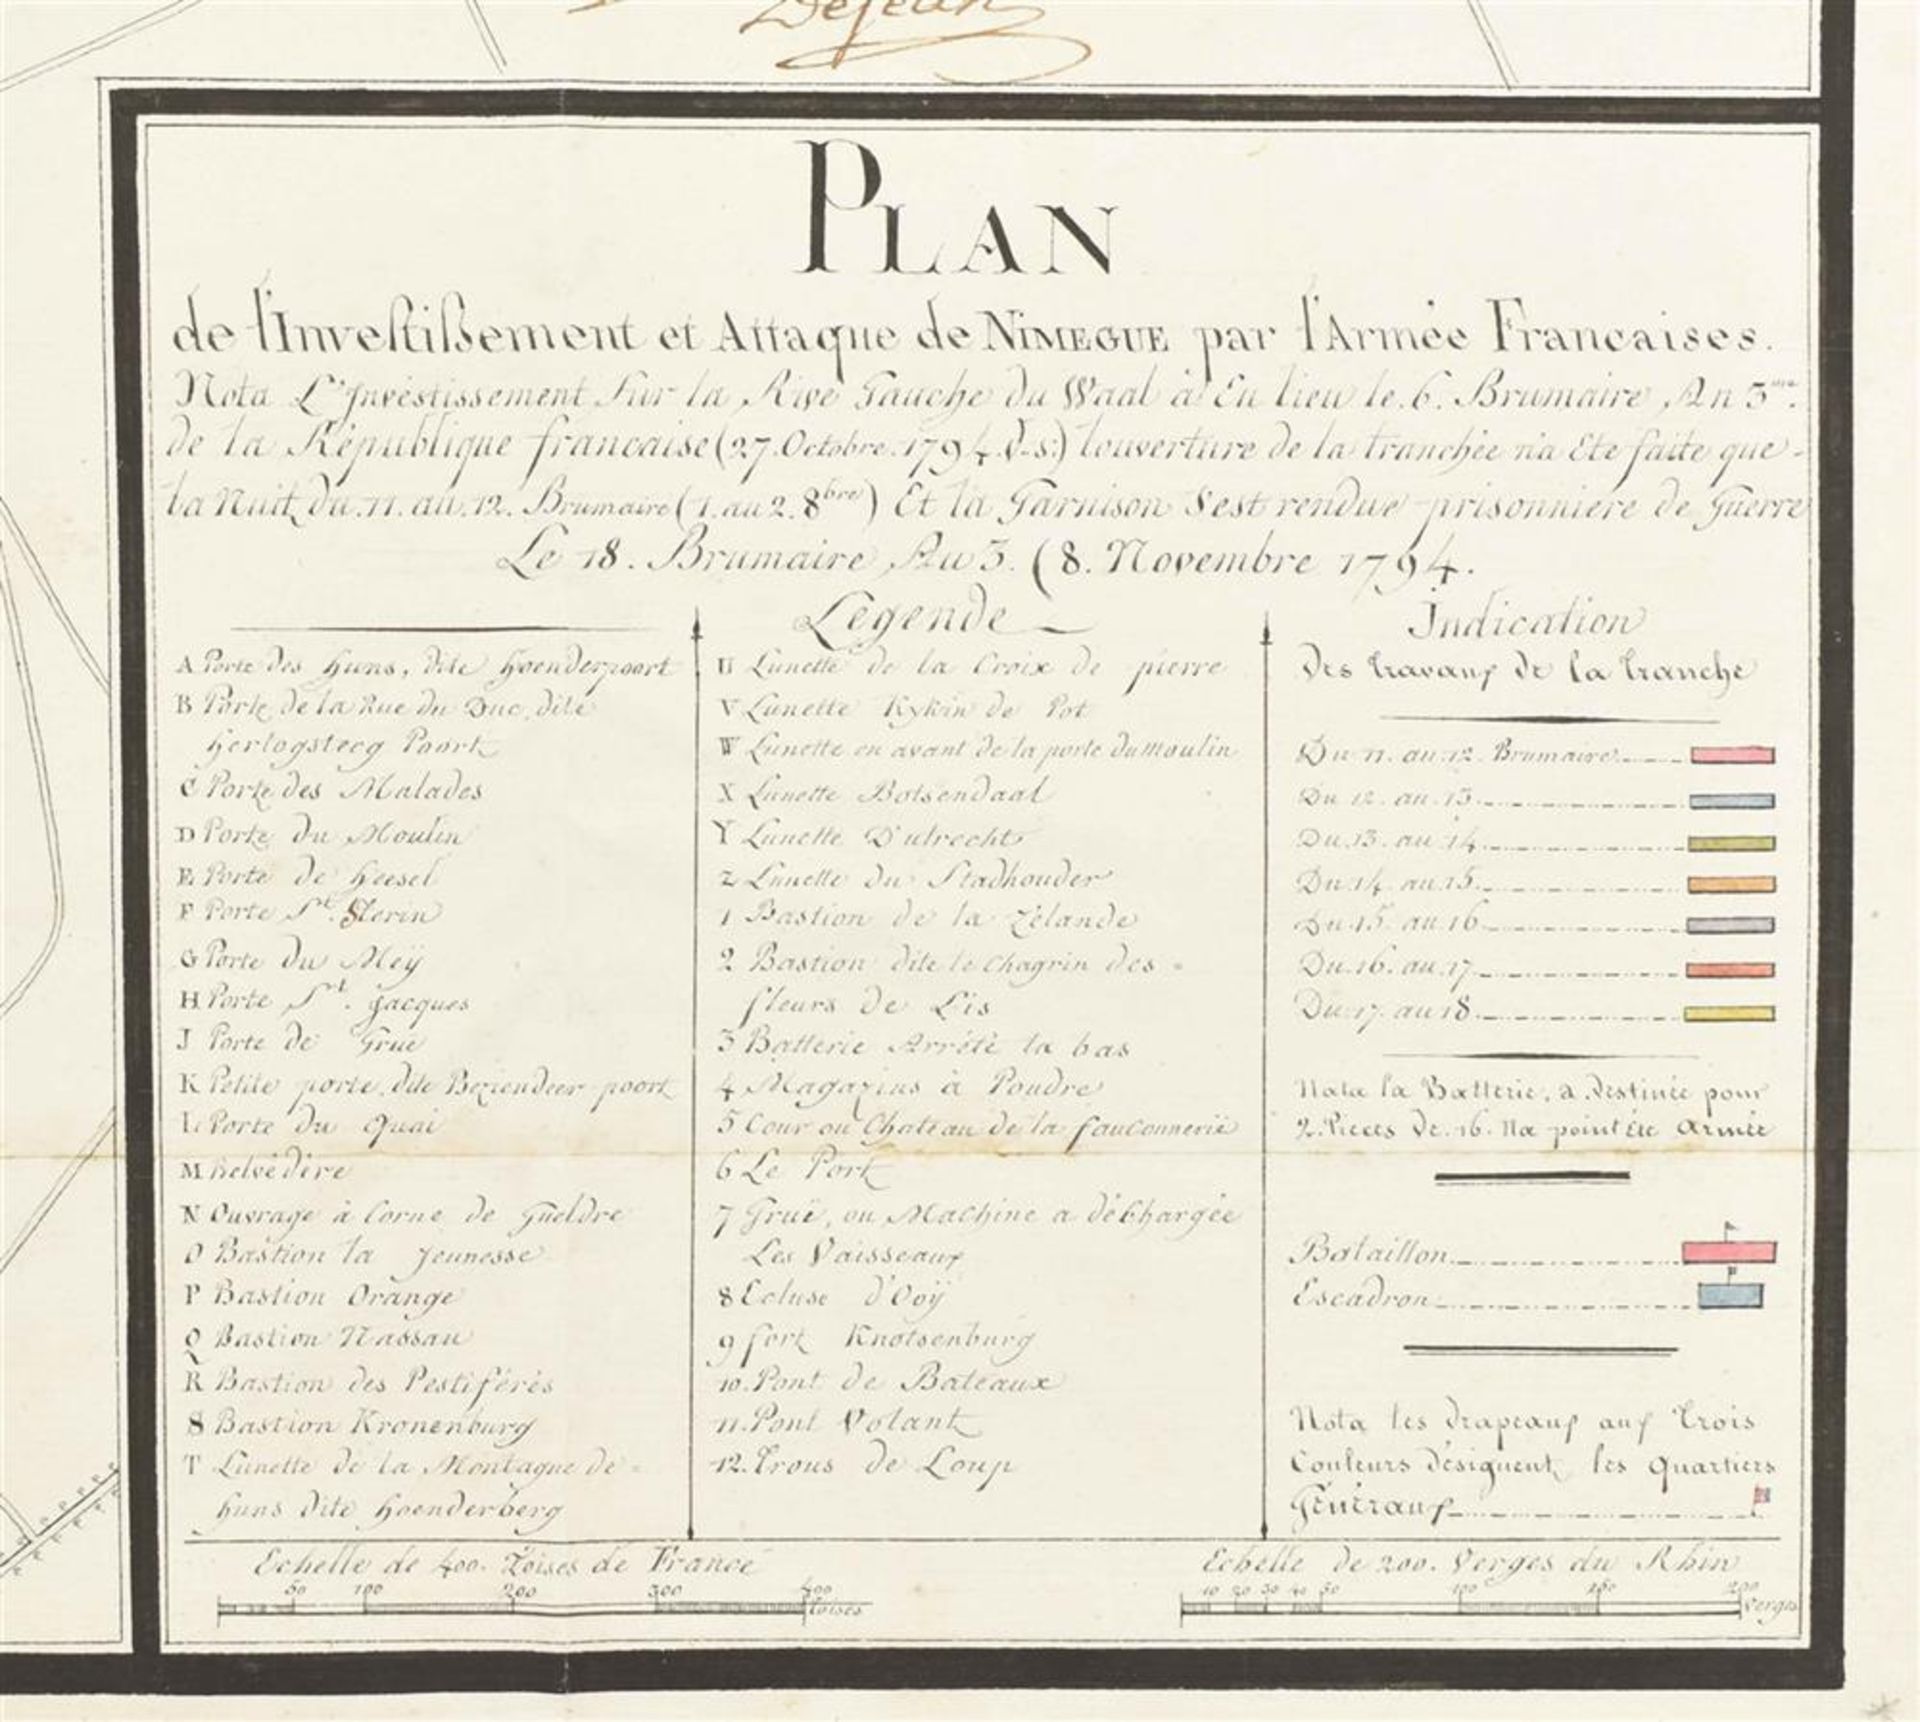 Dejean
PLAN
de l'Investissement et Attaque de NIMEGUE par l'Armée Francaises.
Nota L'Investissement Sur la Rive Gauche du Waal à Eu lieu le 6. Brumaire An 3me.
de la République francaise (27. Octobre. 1794. v.s.) louverture de la tranchée n'a Eté faite que
la Nuit du 11. au 12. Brumaire (1. au 2. 8bre) Et la Garnison S'est rendue prisonniere de Guerre
Le 18. Brumaire An 3. (8. Novembre 1794.
Légende
A Porte des Huns, dite Hoenderpoort
B Porte de la Rue du Duc, dite
Hertogsteeg Poort
C Porte des Malades
D Porte du Moulin
E Porte de Heesel
F Porte St. Sterin
G Porte du Meÿ
H Porte St. Jacques
J Porte de Grue
K Petite porte, dite Beziendeer poort
L Porte du Quai
M Belvédère
N Ouvrage à Corne de Gueldre
O Bastion la Jeunesse
P Bastion Orange
Q Bastion Nassau
R Bastion des Pestiférés
S Bastion Kronenburg
T Lunette de la Montagne de =
huns dite Hoenderberg
U Lunette de la Croix de pierre
V Lunette Kykin de Pot
W Lunette en avant de la porte du moulin
X Lunette Botsendaal
Y Lunette D'utrecht
Z Lunette du Stadhouder
1 Bastion de la Zélande
2 Bastion dite le Chagrin des =
fleurs de Lis
3 Batterie Arrété la bas
4 Magazins à Poudre
5 Cour ou Chateau de la fauconnerie
6 Le Port
7 Gruë, ou Machine a déChargée
Les Vaisseaux
8 Ecluse d'Ooÿ
9 fort Knotsenburg
10. Pont de Bateaux
11. Pont Volant
12. Trous de Loup
Indication
Des travaux de la tranche
Du 11. au 12. Brumaire
Du 12. au 13.
Du 13. au 14.
Du 14. au 15.
Du 15. au 16
Du 16. au 17
Du 17. au 18.
Nota la Batterie, a. destinée pour
2. Pieces de. 16. Na point éte Armée
Bataillon
Escadron
Nota les drapeaux aux Trois
Couleurs désignent les Quartiers
Généraux
Echelle de 400. Toises de France
50 100 200 300 400
Toises
Echelle de 200. Verges du Rhin
10 20 30 40 50 100 150 200
Verges